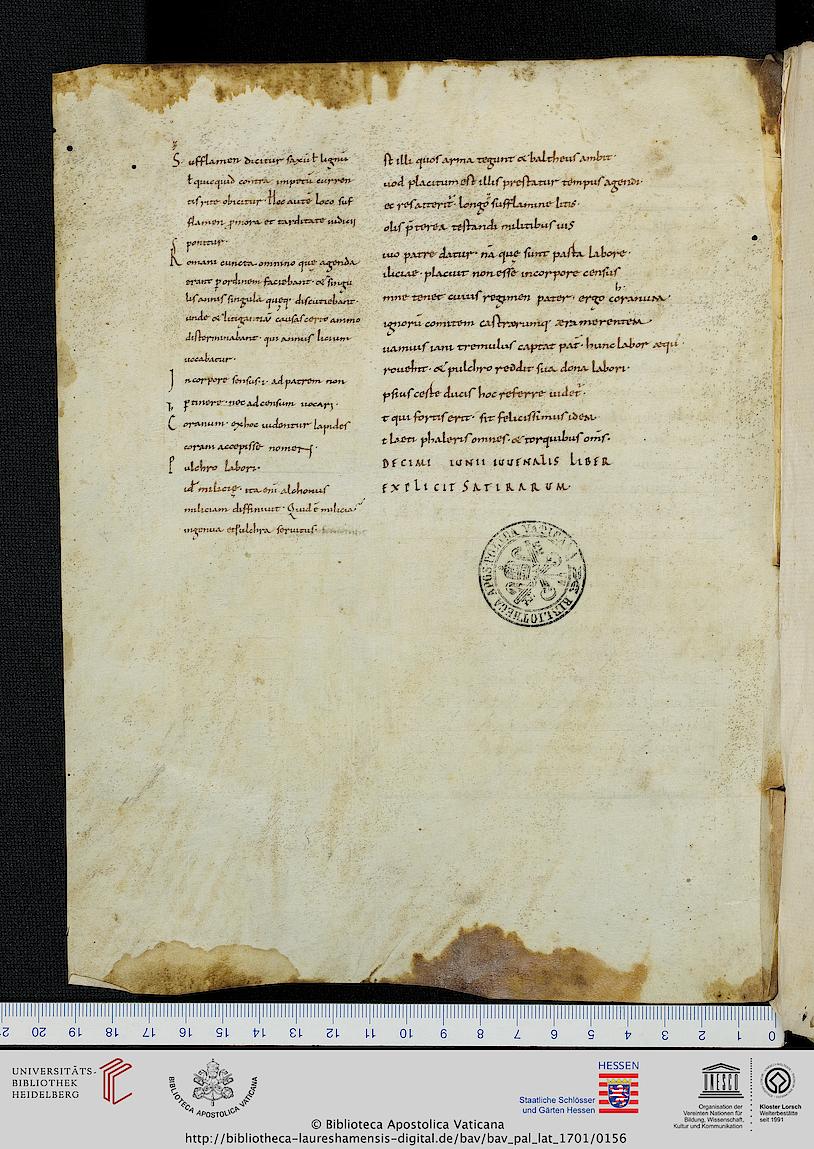 S ufflamen dicitur saxū ł lignū
ł quicquid contra impetū curren
tis rite obicitur. Hoc autē loco suf
flamen p mora et tarditate iudicii
ponitur.
R omani cuncta omnino quę agenda
erant p ordinem faciebant. & singu
lis annis singula quęq; discutiebant.
unde & litigantiū causas certo anno
disterminabant. qui annus litium
uocabatur.
I n corpore sensus .i. ad patrem non
ptinere. nec ad censum uocari.
C oranum. ex hoc uidentur lapides
coram accepisse nomen.
P ulchro labori.
uł milicię. ita eni alchonus
miliciam diffiniuit. Quid ē milicia
ingenua et pulchra seruitus.
st illi quos arma tegunt & baltheus ambit.
uod placitum est illis prestatur tempus agendi.
ec res atterit longo sufflamine litis.
olis p̄terea testandi militibus ius
iuo patre datur. nā quę sunt parta labore.
iliciae. placuit non esse in corpore census
mne tenet cuius regimen pater. ergo coranum.
h.
ignorū comitem castrorumq; aera merentem.
uamuis iam tremulus captat pat̄. hunc labor aequ
rouehit. & pulchro reddit sua dona labori.
psius certe ducis hoc referre uidet̄.
t qui fortis erit. sit felicissimus idem.
t laeti phaleris omnes. & torquibus om̄s.
DECIMI IUNII IUUENALIS LIBER
EXPLICIT SATIRARUM.
BIBLIOTHECA APOSTOLICA VATICANA
21 20 19 18 17 16 15 14 13 12 11 10 9 8 7 6 5 4 3 2 1 0
UNIVERSITÄTS-
BIBLIOTHEK
HEIDELBERG
BIBLIOTECA APOSTOLICA VATICANA
HESSEN
Staatliche Schlösser
und Gärten Hessen
UNESCO
Organisation der
Vereinten Nationen für
Bildung, Wissenschaft,
Kultur und Kommunikation
Kloster Lorsch
Welterbestätte
seit 1991
© Biblioteca Apostolica Vaticana
http://bibliotheca-laureshamensis-digital.de/bav/bav_pal_lat_1701/0156